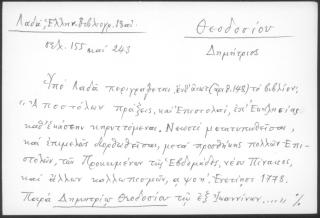 Λαδά, Ἑλλην. Βιβλιογρ. 18αι.
Θεοδοσίου
σελ. 155 καὶ 243
Δημήτριος
Ὑπὸ Λαδᾶ περιγράφεται, (ἀρ. 148) τὸ βιβλίον:
"Ἀποστόλων πράξεις, καὶ Ἐπιστολαί, ἐπ' Ἐκκλησίας
καθ' ἑκάστην κηρυττόμεναι. Νεωστὶ μετατυπωθεῖσαι,
καὶ ἐπιμελῶς διορθωθεῖσαι, μετὰ προσθήκης πολλῶν Ἐπι-
στολῶν, τῶν Προκειμένων τῆς Ἑβδομάδος, νέου Πίνακος,
καὶ ἄλλων καλλωπισμῶν, αψοη'. Ἐνετίῃσι 1778.
Παρὰ Δημητρίῳ Θεοδοσίου τῷ ἐξ Ἰωαννίνων...." %